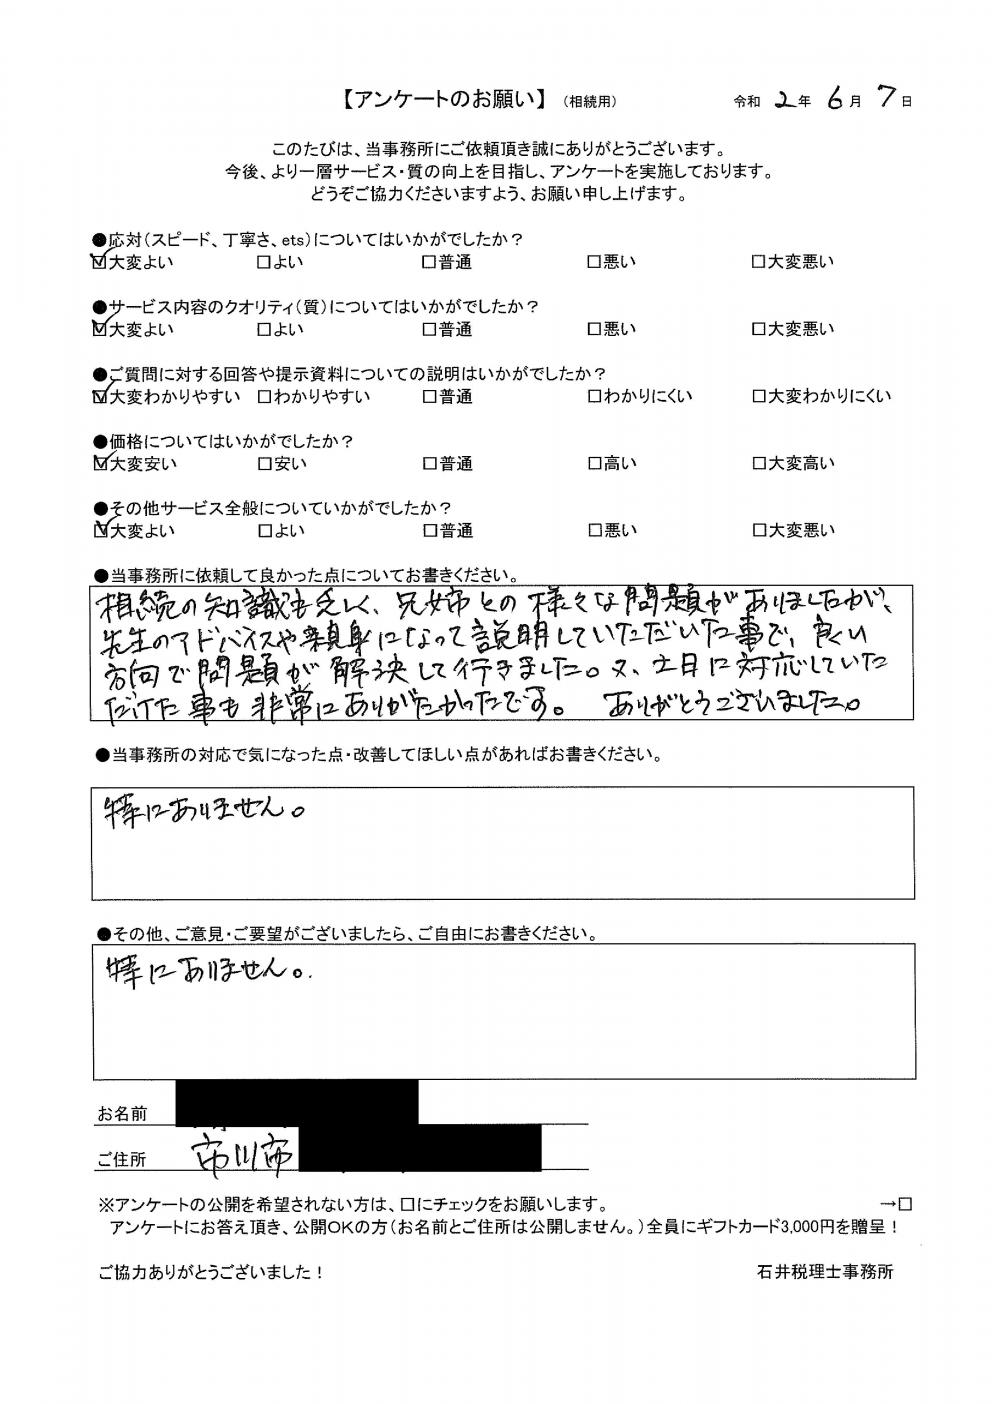 【アンケートのお願い】（相続用） 令和 2年 6月 7日
このたびは、当事務所にご依頼頂き誠にありがとうございます。
今後、より一層サービス・質の向上を目指し、アンケートを実施しております。
どうぞご協力くださいますよう、お願い申し上げます。
●応対（スピード、丁寧さ、ets）についてはいかがでしたか？
☑大変よい □よい □普通 □悪い □大変悪い
●サービス内容のクオリティ（質）についてはいかがでしたか？
☑大変よい □よい □普通 □悪い □大変悪い
●ご質問に対する回答や提示資料についての説明はいかがでしたか？
☑大変わかりやすい □わかりやすい □普通 □わかりにくい □大変わかりにくい
●価格についてはいかがでしたか？
☑大変安い □安い □普通 □高い □大変高い
●その他サービス全般についていかがでしたか？
☑大変よい □よい □普通 □悪い □大変悪い
●当事務所に依頼して良かった点についてお書きください。
相続の知識も乏しく、兄姉との様々な問題がありましたが、
先生のアドバイスや親身になって説明していただいた事で、良い
方向で問題が解決して行きました。又、土日に対応していた
だけた事も非常にありがたかったです。 ありがとうございました。
●当事務所の対応で気になった点・改善してほしい点があればお書きください。
特にありません。
●その他、ご意見・ご要望がございましたら、ご自由にお書きください。
特にありません。
お名前
ご住所 市川市
※アンケートの公開を希望されない方は、□にチェックをお願いします。 →□
アンケートにお答え頂き、公開OKの方（お名前とご住所は公開しません。）全員にギフトカード3,000円を贈呈！
ご協力ありがとうございました！ 石井税理士事務所